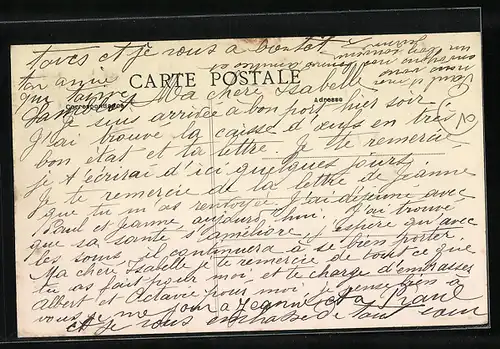 tous et je vous a bientot
ton amie
qui t'aime
Jeanne
CARTE POSTALE
Correspondance
Adresse
Ma chere Isabelle
Je suis arrivée a bon port hier soir
J'ai trouvé la caisse d'œufs en tres
bon etat et ta lettre je te remercie
je t'ecrirai d'ici quelques jours
Je te remercie de la lettre de Jeanne
que tu m'as renvoyée J'ai dejeuné avec
Paul et Jeanne aujourd'hui. J'ai trouvé
que sa santé s'améliore j'espere qu'avec
les soins, il continuera a se bien porter
Ma chere Isabelle je te remercie de tout ce que
tu as fait pour moi et te charge d'embrasser
Albert et Octavie pour moi je pense bien a
vous je me joins a Jeanne et a Paul
et je vous embrasse de tout cœur